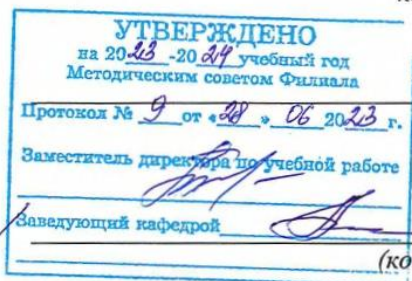 УТВЕРЖДЕНО
на 2023 -2024 учебный год
Методическим советом Филиала
Протокол № 9 от «28» 06 2023 г.
Заместитель директора по учебной работе
Заведующий кафедрой
(ко